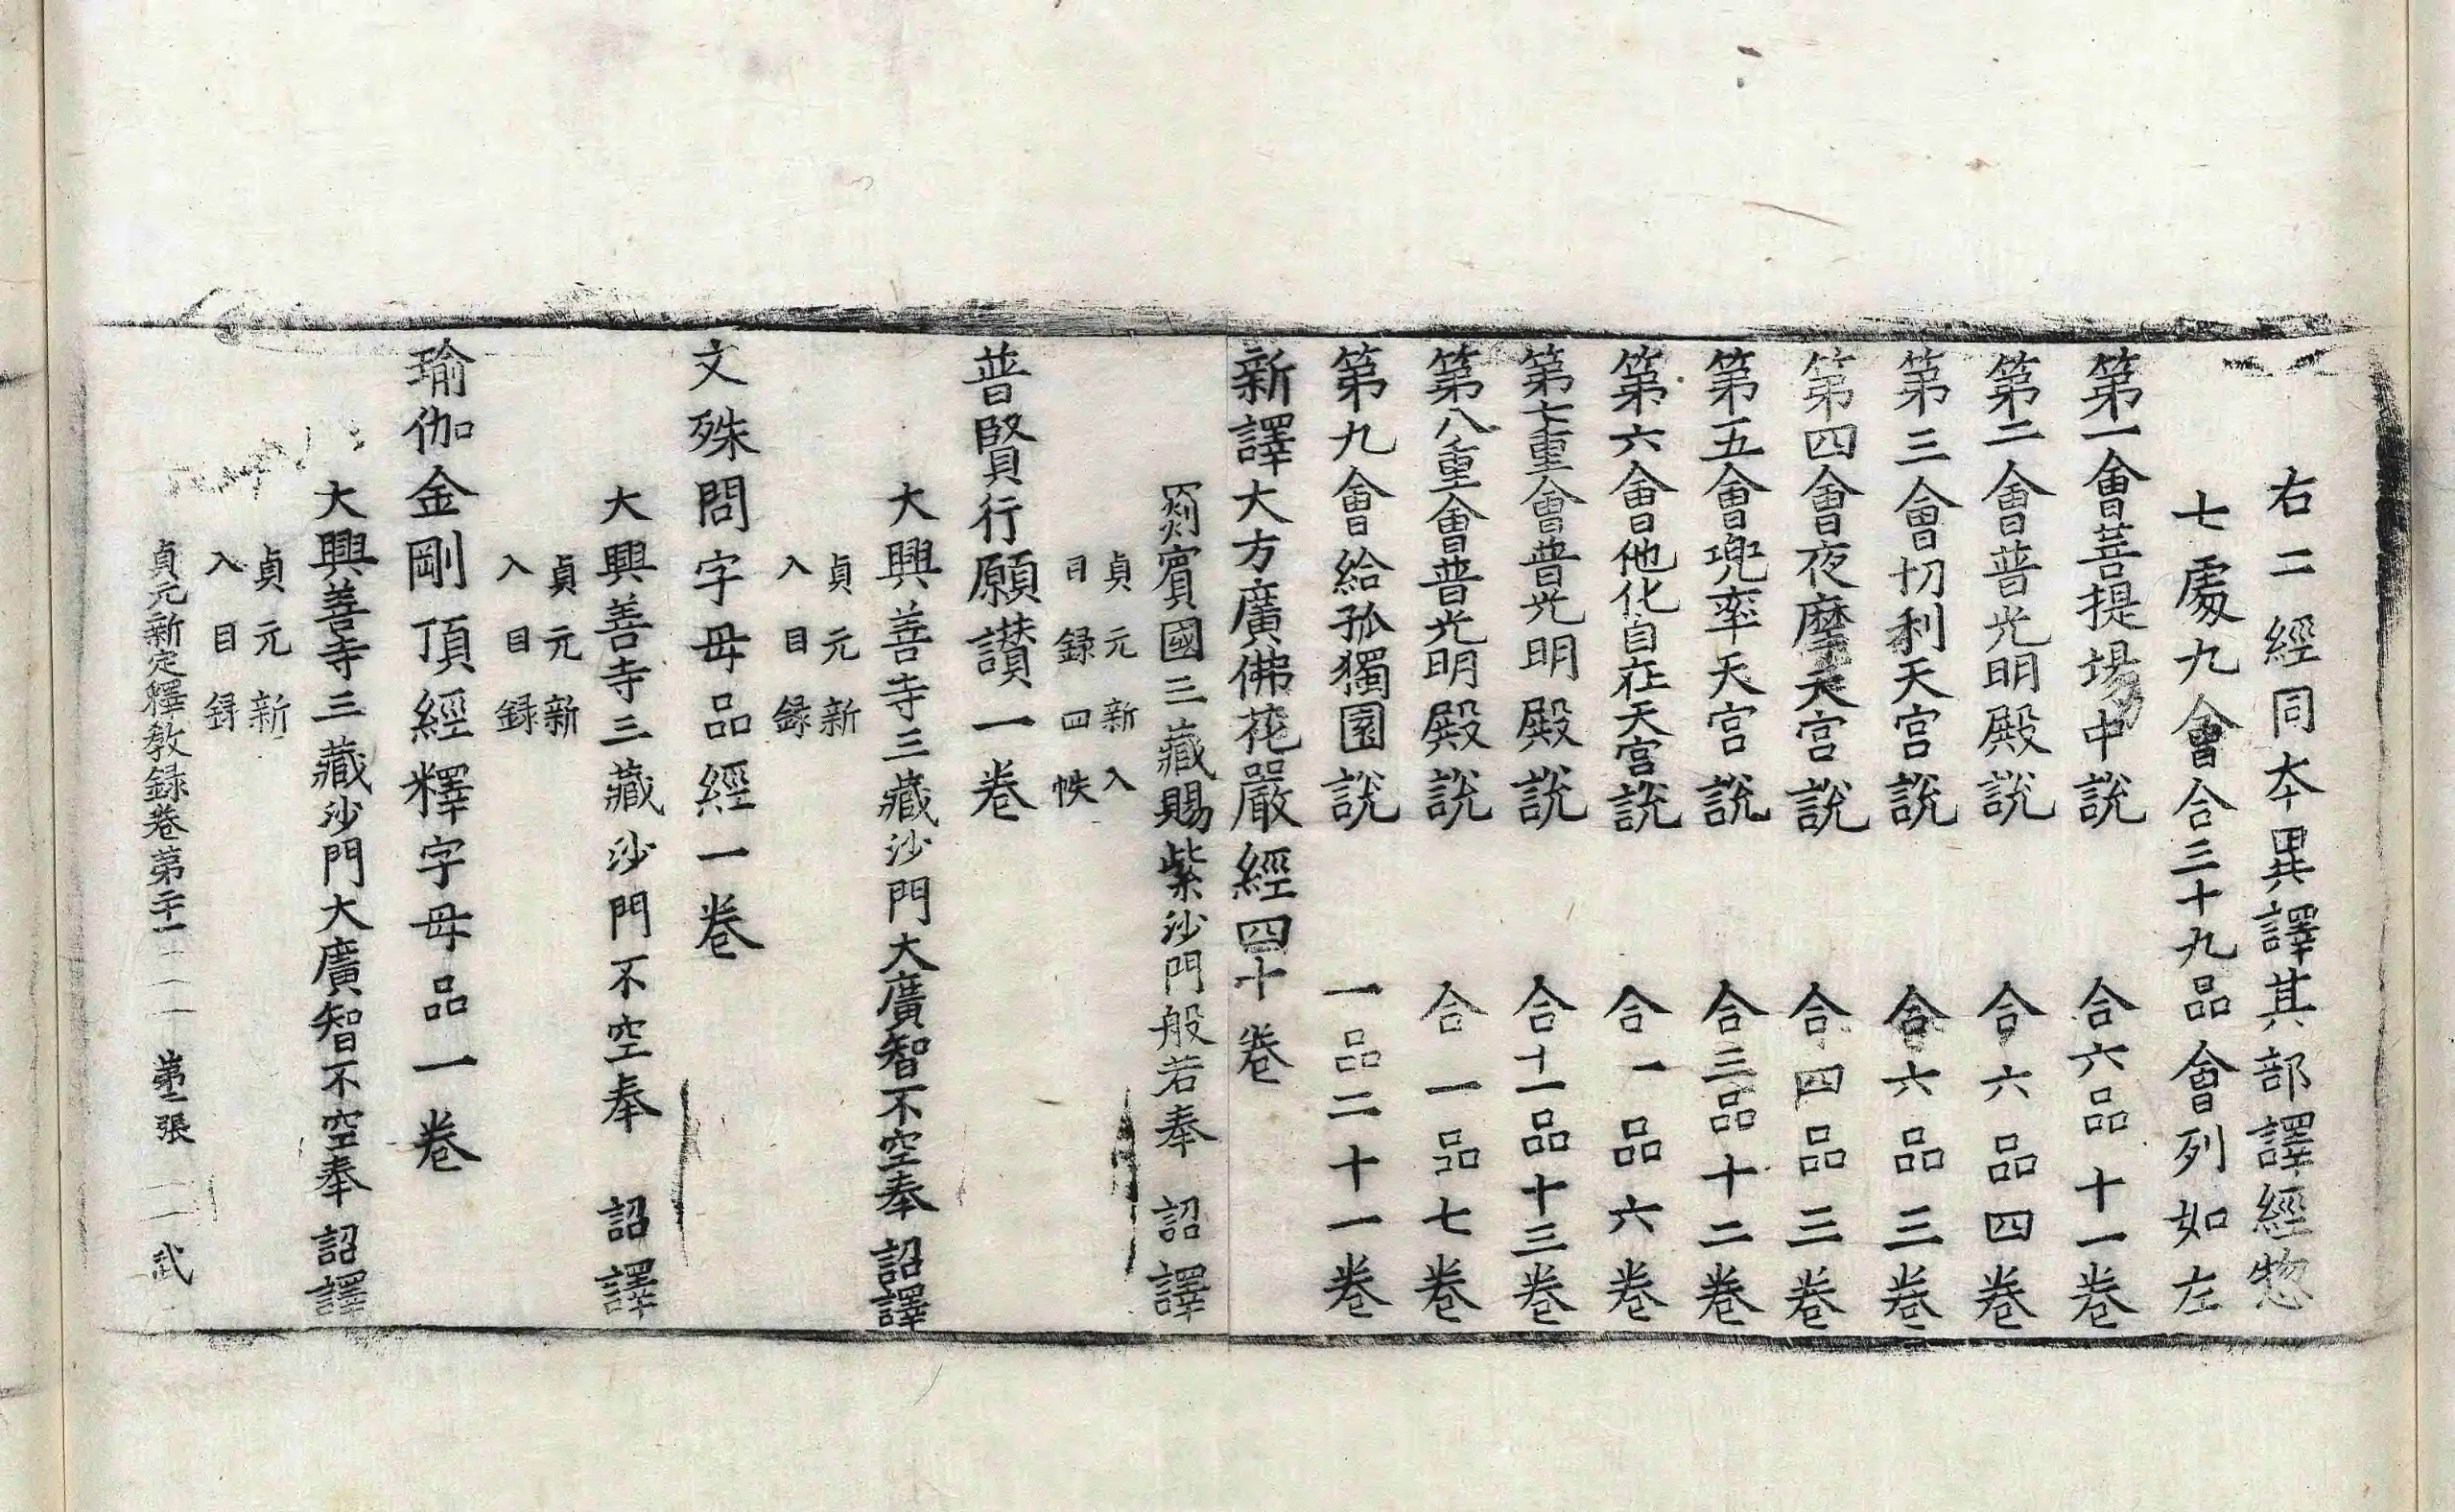 右二經同夲異譯其部譯經惣
七處九會合三十九品會列如左
第一會菩提場中說　合六品十一卷
第二會普光明殿說　合六品四卷
第三會忉利天宮說　合六品三卷
第四會夜摩天宮說　合四品三卷
第五會兜率天宮說　合三品十二卷
第六會他化自在天宮說　合一品六卷
第七重會普光明殿說　合十一品十三卷
第八重會普光明殿說　合一品七卷
第九會給孤獨園說　一品二十一卷
新譯大方廣佛花嚴經四十卷
罽賓國三藏賜紫沙門般若奉　詔譯
貞元新入
目錄四帙
普賢行願讃一卷
大興善寺三藏沙門大廣智不空奉　詔譯
貞元新
入目録
文殊問字母品經一卷
大興善寺三藏沙門不空奉　詔譯
貞元新
入目録
瑜伽金剛頂經釋字母品一卷
大興善寺三藏沙門大廣智不空奉　詔譯
貞元新
入目録
貞元新定釋教録卷第二十一　第二張　武